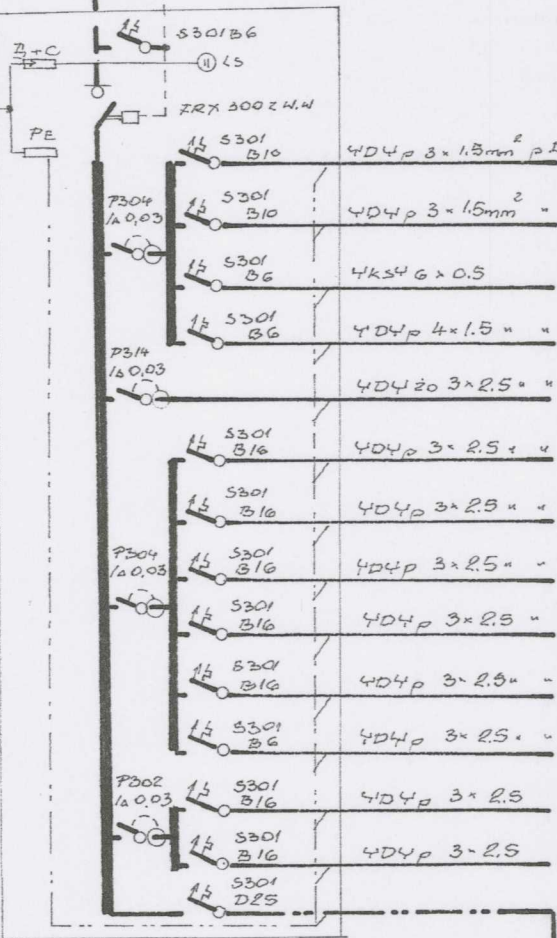 S301B6
B+C
LS
FRX 300Z W.W
PE
S301
B10
YDYp 3×1.5mm² p
P304
IΔ 0,03
S301
B10
YDYp 3×1.5mm² "
S301
B6
YKSY 6×0.5
S301
B6
YDYp 4×1.5 " "
P314
IΔ 0,03
YDYżo 3×2.5 " "
S301
B16
YDYp 3×2.5 " "
S301
B16
YDYp 3×2.5 " "
P304
IΔ 0,03
S301
B16
YDYp 3×2.5 " "
S301
B16
YDYp 3×2.5 "
S301
B16
YDYp 3×2.5 " "
S301
B6
YDYp 3×2.5 " "
P302
IΔ 0,03
S301
B16
YDYp 3×2.5
S301
B16
YDYp 3×2.5
S301
D25